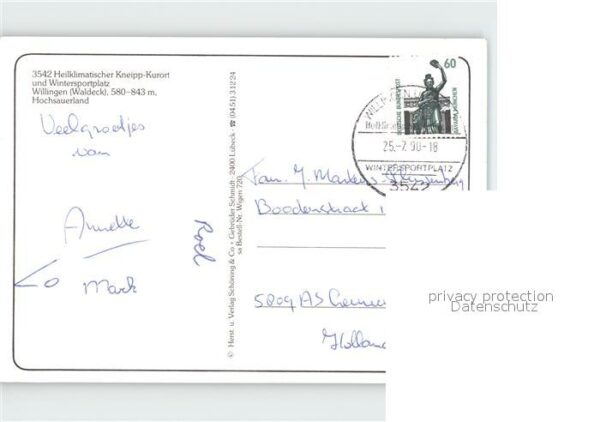 3542 Heilklimatischer Kneipp-Kurort
und Wintersportplatz
Willingen (Waldeck), 580–843 m,
Hochsauerland
Veel groetjes
van
Annette
Mark
Roel
© Herst. u. Verlag Schöning & Co + Gebrüder Schmidt · 2400 Lübeck · ☎ (04 51) 3 12 24
sa Bestell-Nr. Wigen 720
60
DEUTSCHE BUNDESPOST
BAVARIA MÜNCHEN
25.-7.90-18
WINTERSPORTPLATZ
3542
Fam. J.
Hollan
privacy protection
Datenschutz